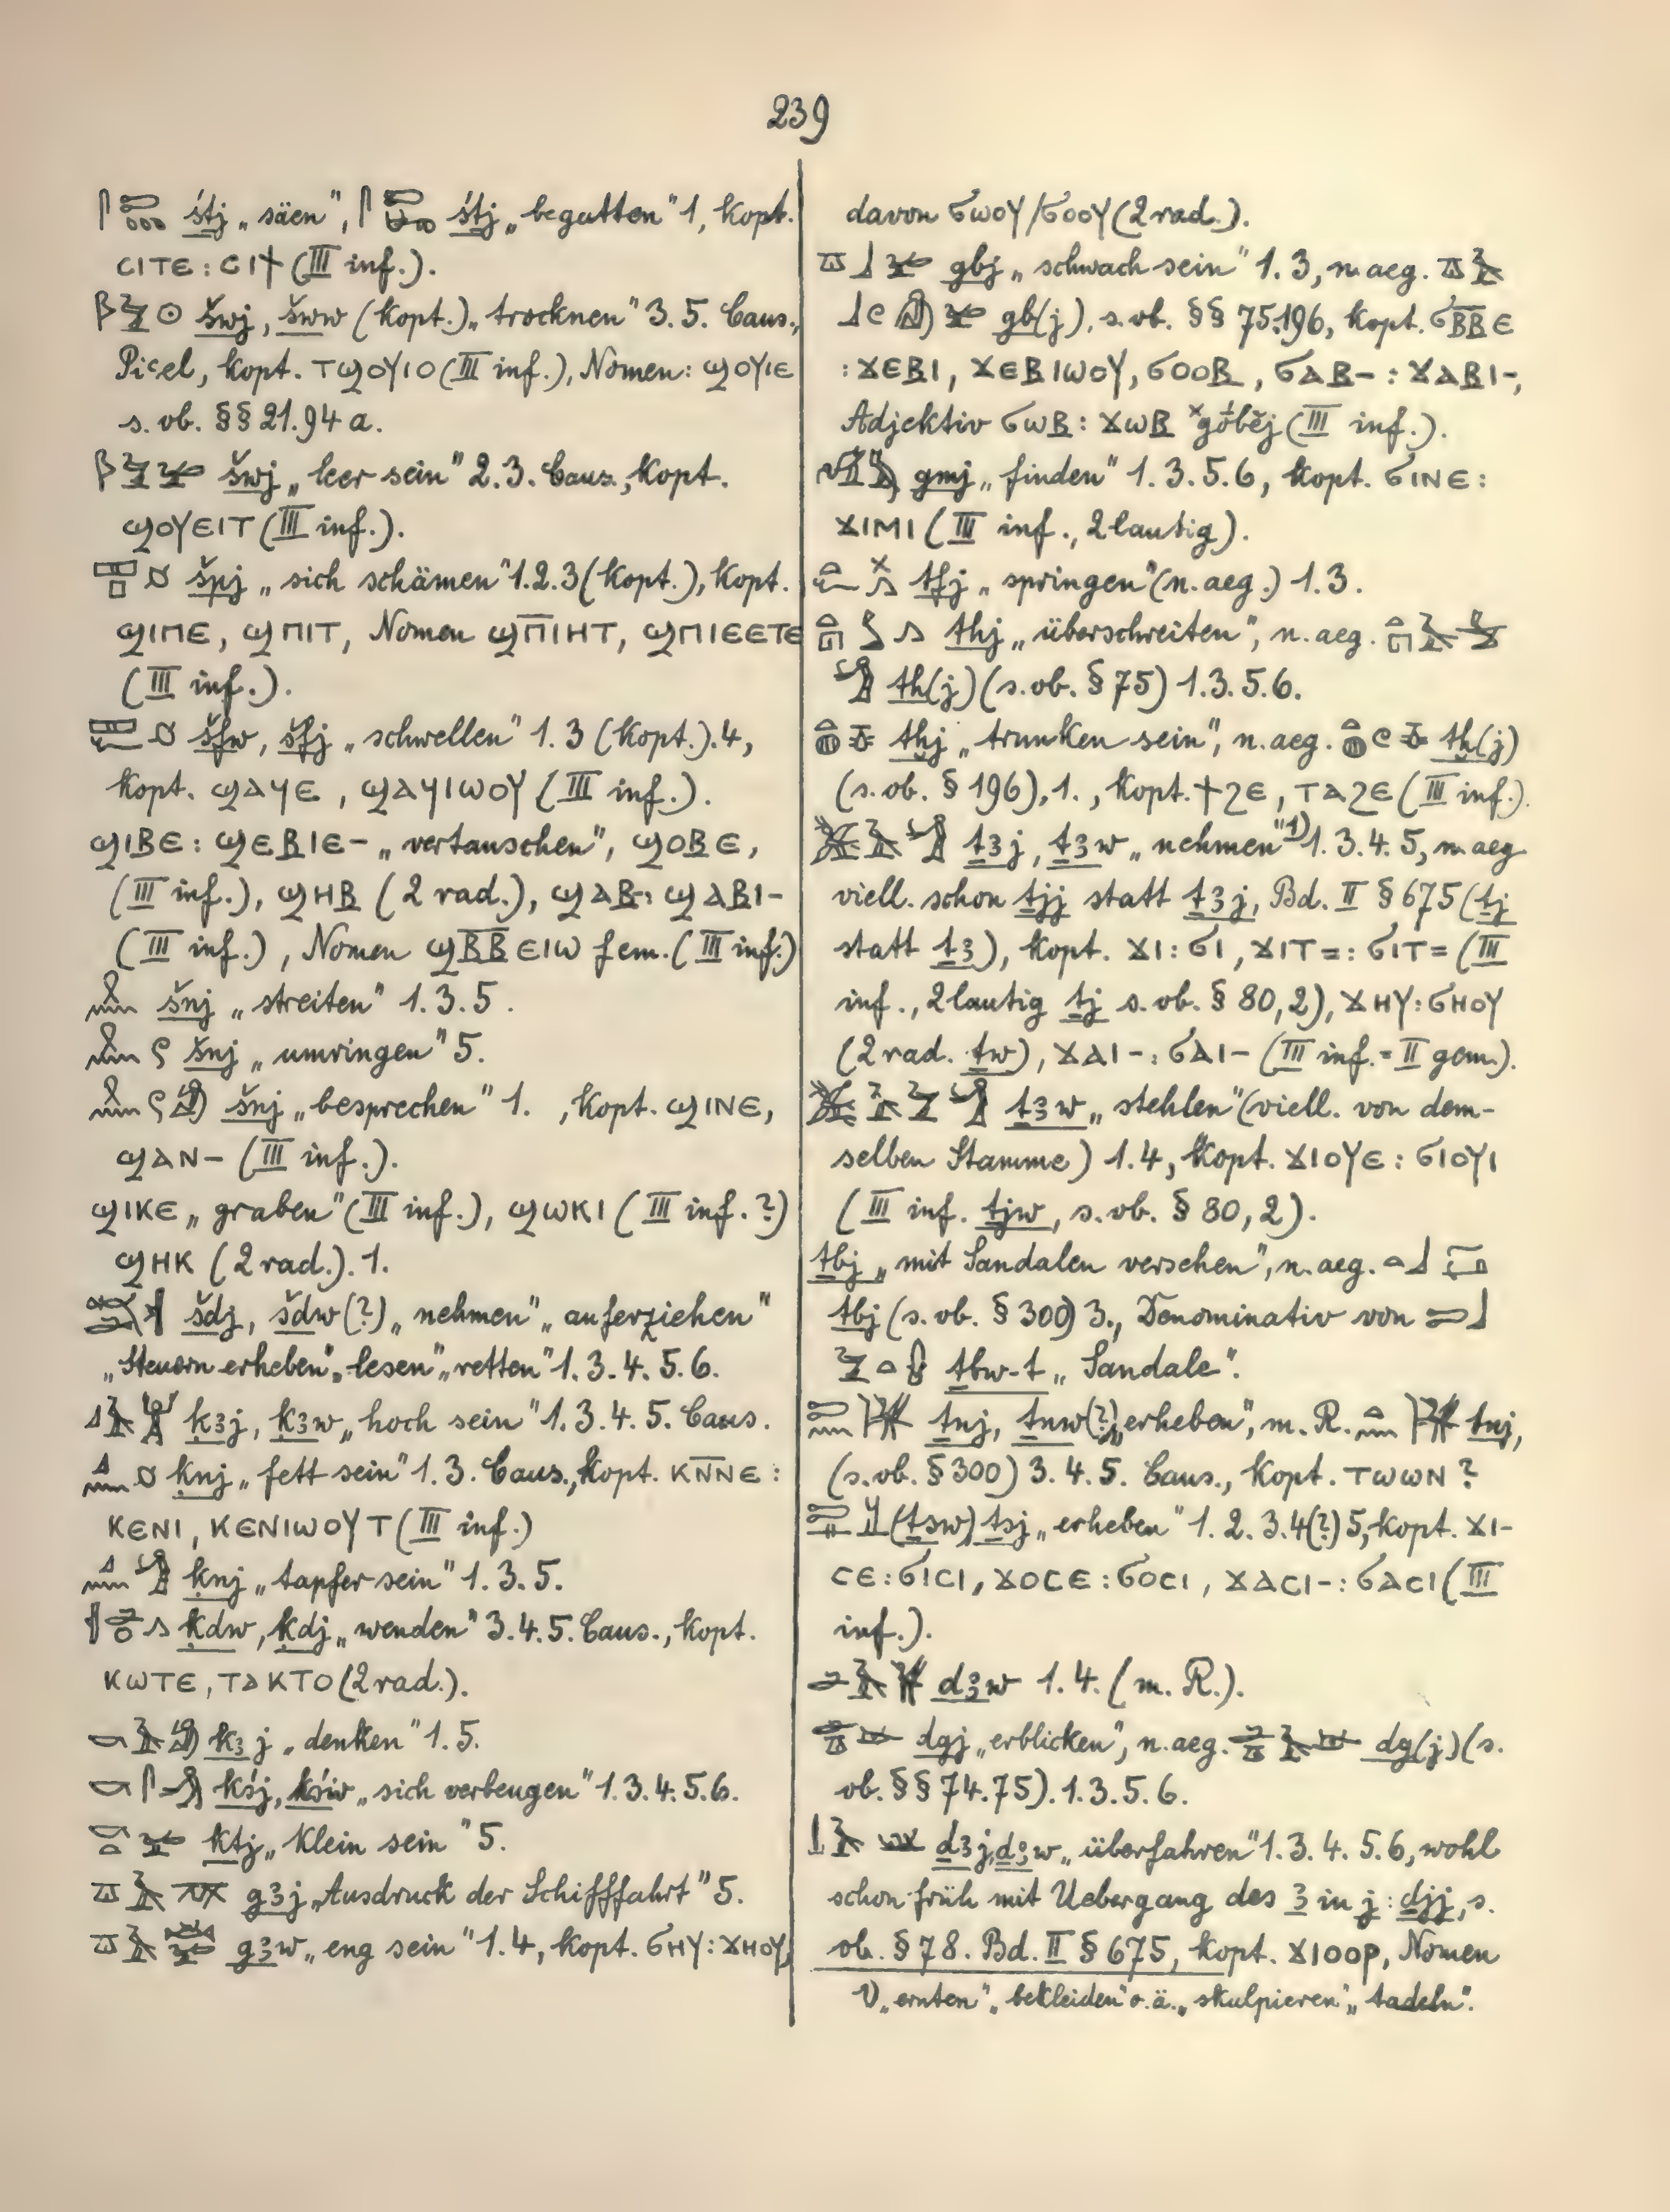 239
śtj „säen", śtj „begatten" 1, kopt.
ⲥⲓⲧⲉ : ⲥⲓϯ (III inf.).
šwj, šww (kopt.) „trocknen" 3. 5. Caus.,
Piel, kopt. ⲧϣⲟⲩⲓⲟ (III inf.), Nomen: ϣⲟⲩⲓⲉ
s. ob. §§ 21. 94 a.
šwj „leer sein" 2. 3. Caus., kopt.
ϣⲟⲩⲉⲓⲧ (III inf.).
špj „sich schämen" 1. 2. 3 (kopt.), kopt.
ϣⲓⲡⲉ, ϣⲡⲓⲧ, Nomen ϣⲡ̅ⲓⲏⲧ, ϣⲡⲓⲉⲉⲧⲉ
(III inf.).
šfw, šfj „schwellen" 1. 3 (kopt.). 4,
kopt. ϣⲁϥⲉ, ϣⲁϥⲓⲱⲟⲩ (III inf.).
ϣⲓⲃⲉ : ϣⲉⲃⲓⲉ- „vertauschen", ϣⲟⲃⲉ,
(III inf.), ϣⲏⲃ (2 rad.), ϣⲁⲃ- : ϣⲁⲃⲓ-
(III inf.), Nomen ϣⲃ̅ⲃ̅ⲉⲓⲱ fem. (III inf.)
šnj „streiten" 1. 3. 5.
šnj „umringen" 5.
šnj „besprechen" 1. , kopt. ϣⲓⲛⲉ,
ϣⲁⲛ- (III inf.).
ϣⲓⲕⲉ „graben" (III inf.), ϣⲱⲕⲓ (III inf.?)
ϣⲏⲕ (2 rad.). 1.
šdj, šdw (?) „nehmen" „auferziehen"
„Steuern erheben", „lesen" „retten" 1. 3. 4. 5. 6.
ḳꜣj, ḳꜣw „hoch sein" 1. 3. 4. 5. Caus.
ḳnj „fett sein" 1. 3. Caus., kopt. ⲕⲛ̅ⲛ̅ⲉ :
ⲕⲉⲛⲓ, ⲕⲉⲛⲓⲱⲟⲩⲧ (III inf.)
ḳnj „tapfer sein" 1. 3. 5.
ḳdw, ḳdj „wenden" 3. 4. 5. Caus., kopt.
ⲕⲱⲧⲉ, ⲧⲁⲕⲧⲟ (2 rad.).
kꜣj „denken" 1. 5.
kśj, kśw „sich verbeugen" 1. 3. 4. 5. 6.
ktj „klein sein" 5.
gꜣj „Ausdruck der Schifffahrt" 5.
gꜣw „eng sein" 1. 4, kopt. ϭⲏⲩ : ϫⲏⲟⲩ,
davon ϭⲱⲟⲩ/ϭⲟⲟⲩ (2 rad.).
gbj „schwach sein" 1. 3, n. aeg.
gb(j), s. ob. §§ 75. 196, kopt. ϭⲃ̅ⲃ̅ⲉ
: ϫⲉⲃⲓ, ϫⲉⲃⲓⲱⲟⲩ, ϭⲟⲟⲃ, ϭⲁⲃ- : ϫⲁⲃⲓ-,
Adjektiv ϭⲱⲃ : ϫⲱⲃ ˣgṓbĕj (III inf.).
gmj „finden" 1. 3. 5. 6, kopt. ϭⲓⲛⲉ :
ϫⲓⲙⲓ (III inf., 2 lautig).
tfj „springen" (n. aeg.) 1. 3.
thj „überschreiten", n. aeg.
th(j) (s. ob. § 75) 1. 3. 5. 6.
tḫj „trunken sein", n. aeg. tḫ(j)
(s. ob. § 196), 1. , kopt. ϯϩⲉ, ⲧⲁϩⲉ (III inf.).
ṯꜣj, ṯꜣw „nehmen" 1) 1. 3. 4. 5, n. aeg
viell. schon ṯjj statt ṯꜣj, Bd. II § 675 (ṯj
statt ṯꜣ), kopt. ϫⲓ : ϭⲓ, ϫⲓⲧ= : ϭⲓⲧ= (III
inf., 2 lautig ṯj s. ob. § 80, 2), ϫⲏⲩ : ϭⲏⲟⲩ
(2 rad. ṯw), ϫⲁⲓ- : ϭⲁⲓ- (III inf. = II gem.).
ṯꜣw „stehlen" (viell. von dem-
selben Stamme) 1. 4, kopt. ϫⲓⲟⲩⲉ : ϭⲓⲟⲩⲓ
(III inf. ṯjw, s. ob. § 80, 2).
ṯbj „mit Sandalen versehen", n. aeg.
tbj (s. ob. § 300) 3., Denominativ von
ṯbw-t „Sandale".
ṯnj, ṯnw (?) „erheben", m. R. tnj,
(s. ob. § 300) 3. 4. 5. Caus., kopt. ⲧⲱⲱⲛ ?
(ṯsw) ṯsj „erheben" 1. 2. 3. 4 (?) 5, kopt. ϫⲓ-
ⲥⲉ : ϭⲓⲥⲓ, ϫⲟⲥⲉ : ϭⲟⲥⲓ, ϫⲁⲥⲓ- : ϭⲁⲥⲓ (III
inf.).
dꜣw 1. 4. (m. R.).
dgj „erblicken", n. aeg. dg(j) (s.
ob. §§ 74. 75). 1. 3. 5. 6.
ḏꜣj, ḏꜣw „überfahren" 1. 3. 4. 5. 6, wohl
schon früh mit Uebergang des ꜣ in j : ḏjj, s.
ob. § 78. Bd. II § 675, kopt. ϫⲓⲟⲟⲣ, Nomen
1) „ernten" „bekleiden" o. ä. „skulpieren", „tadeln".